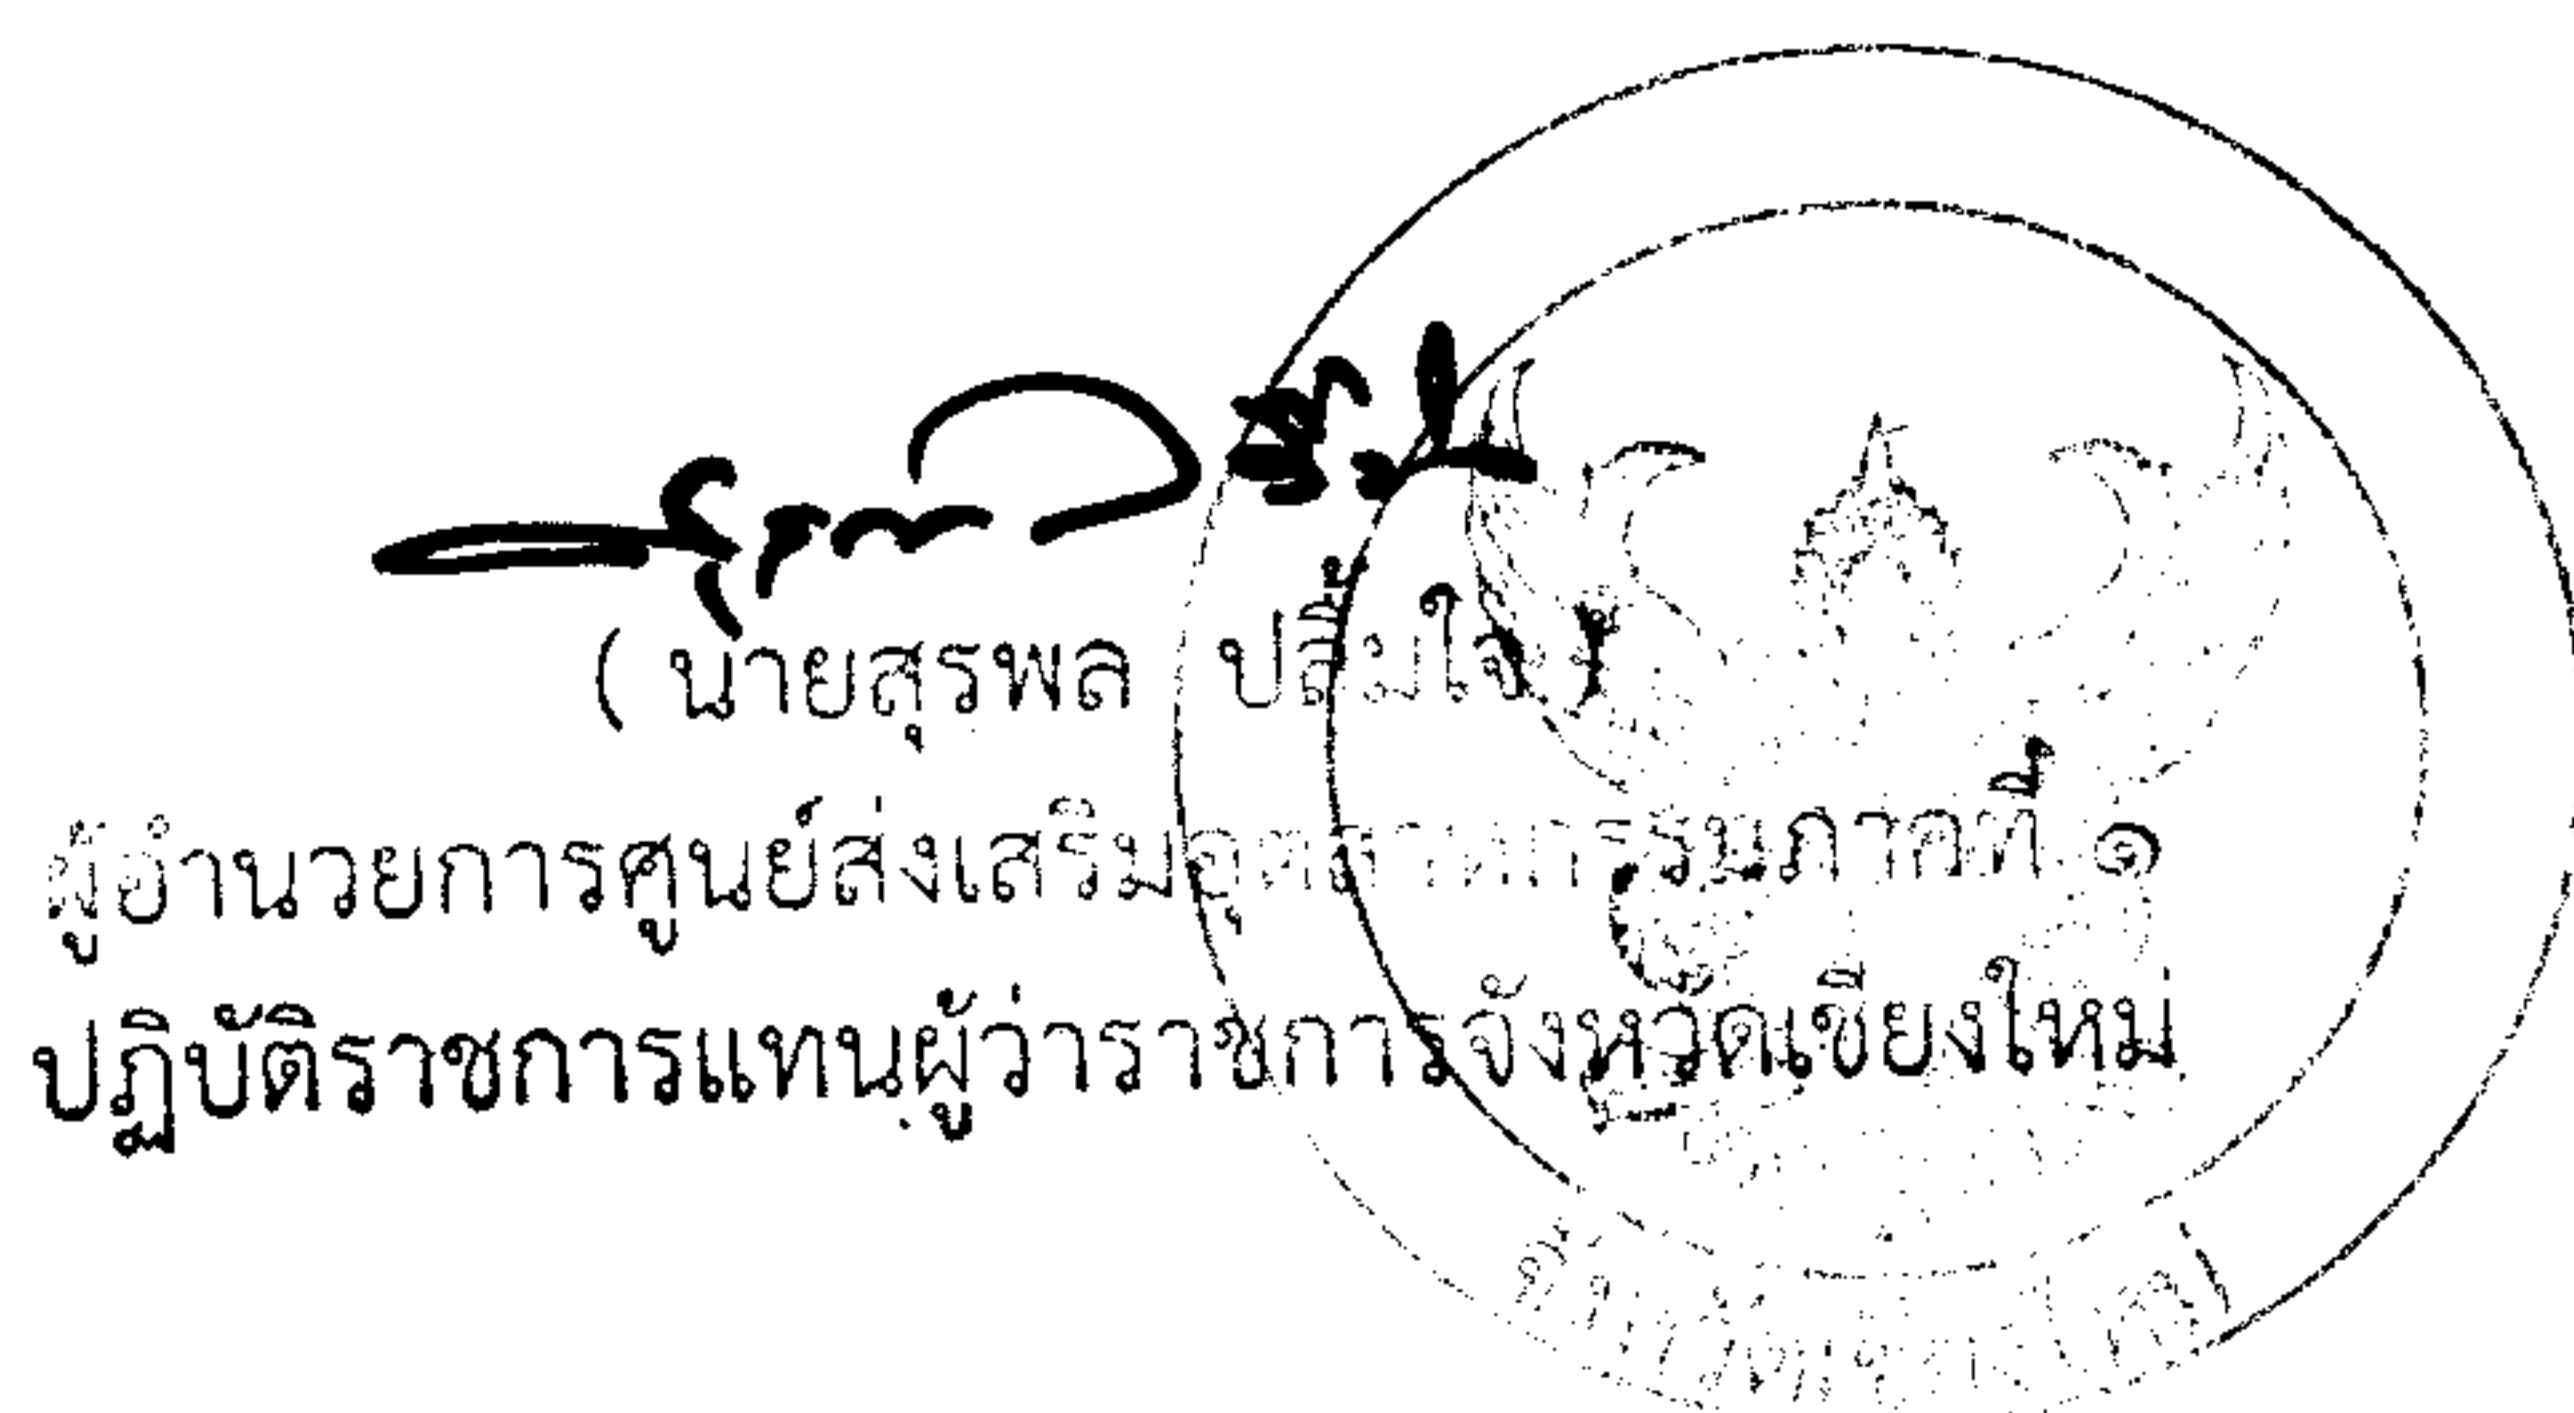 ( นายสุรพล ปลื้มใจ )
ผู้อำนวยการศูนย์ส่งเสริมอุตสาหกรรมภาคที่ ๑
ปฏิบัติราชการแทนผู้ว่าราชการจังหวัดเชียงใหม่
จังหวัดเชียงใหม่